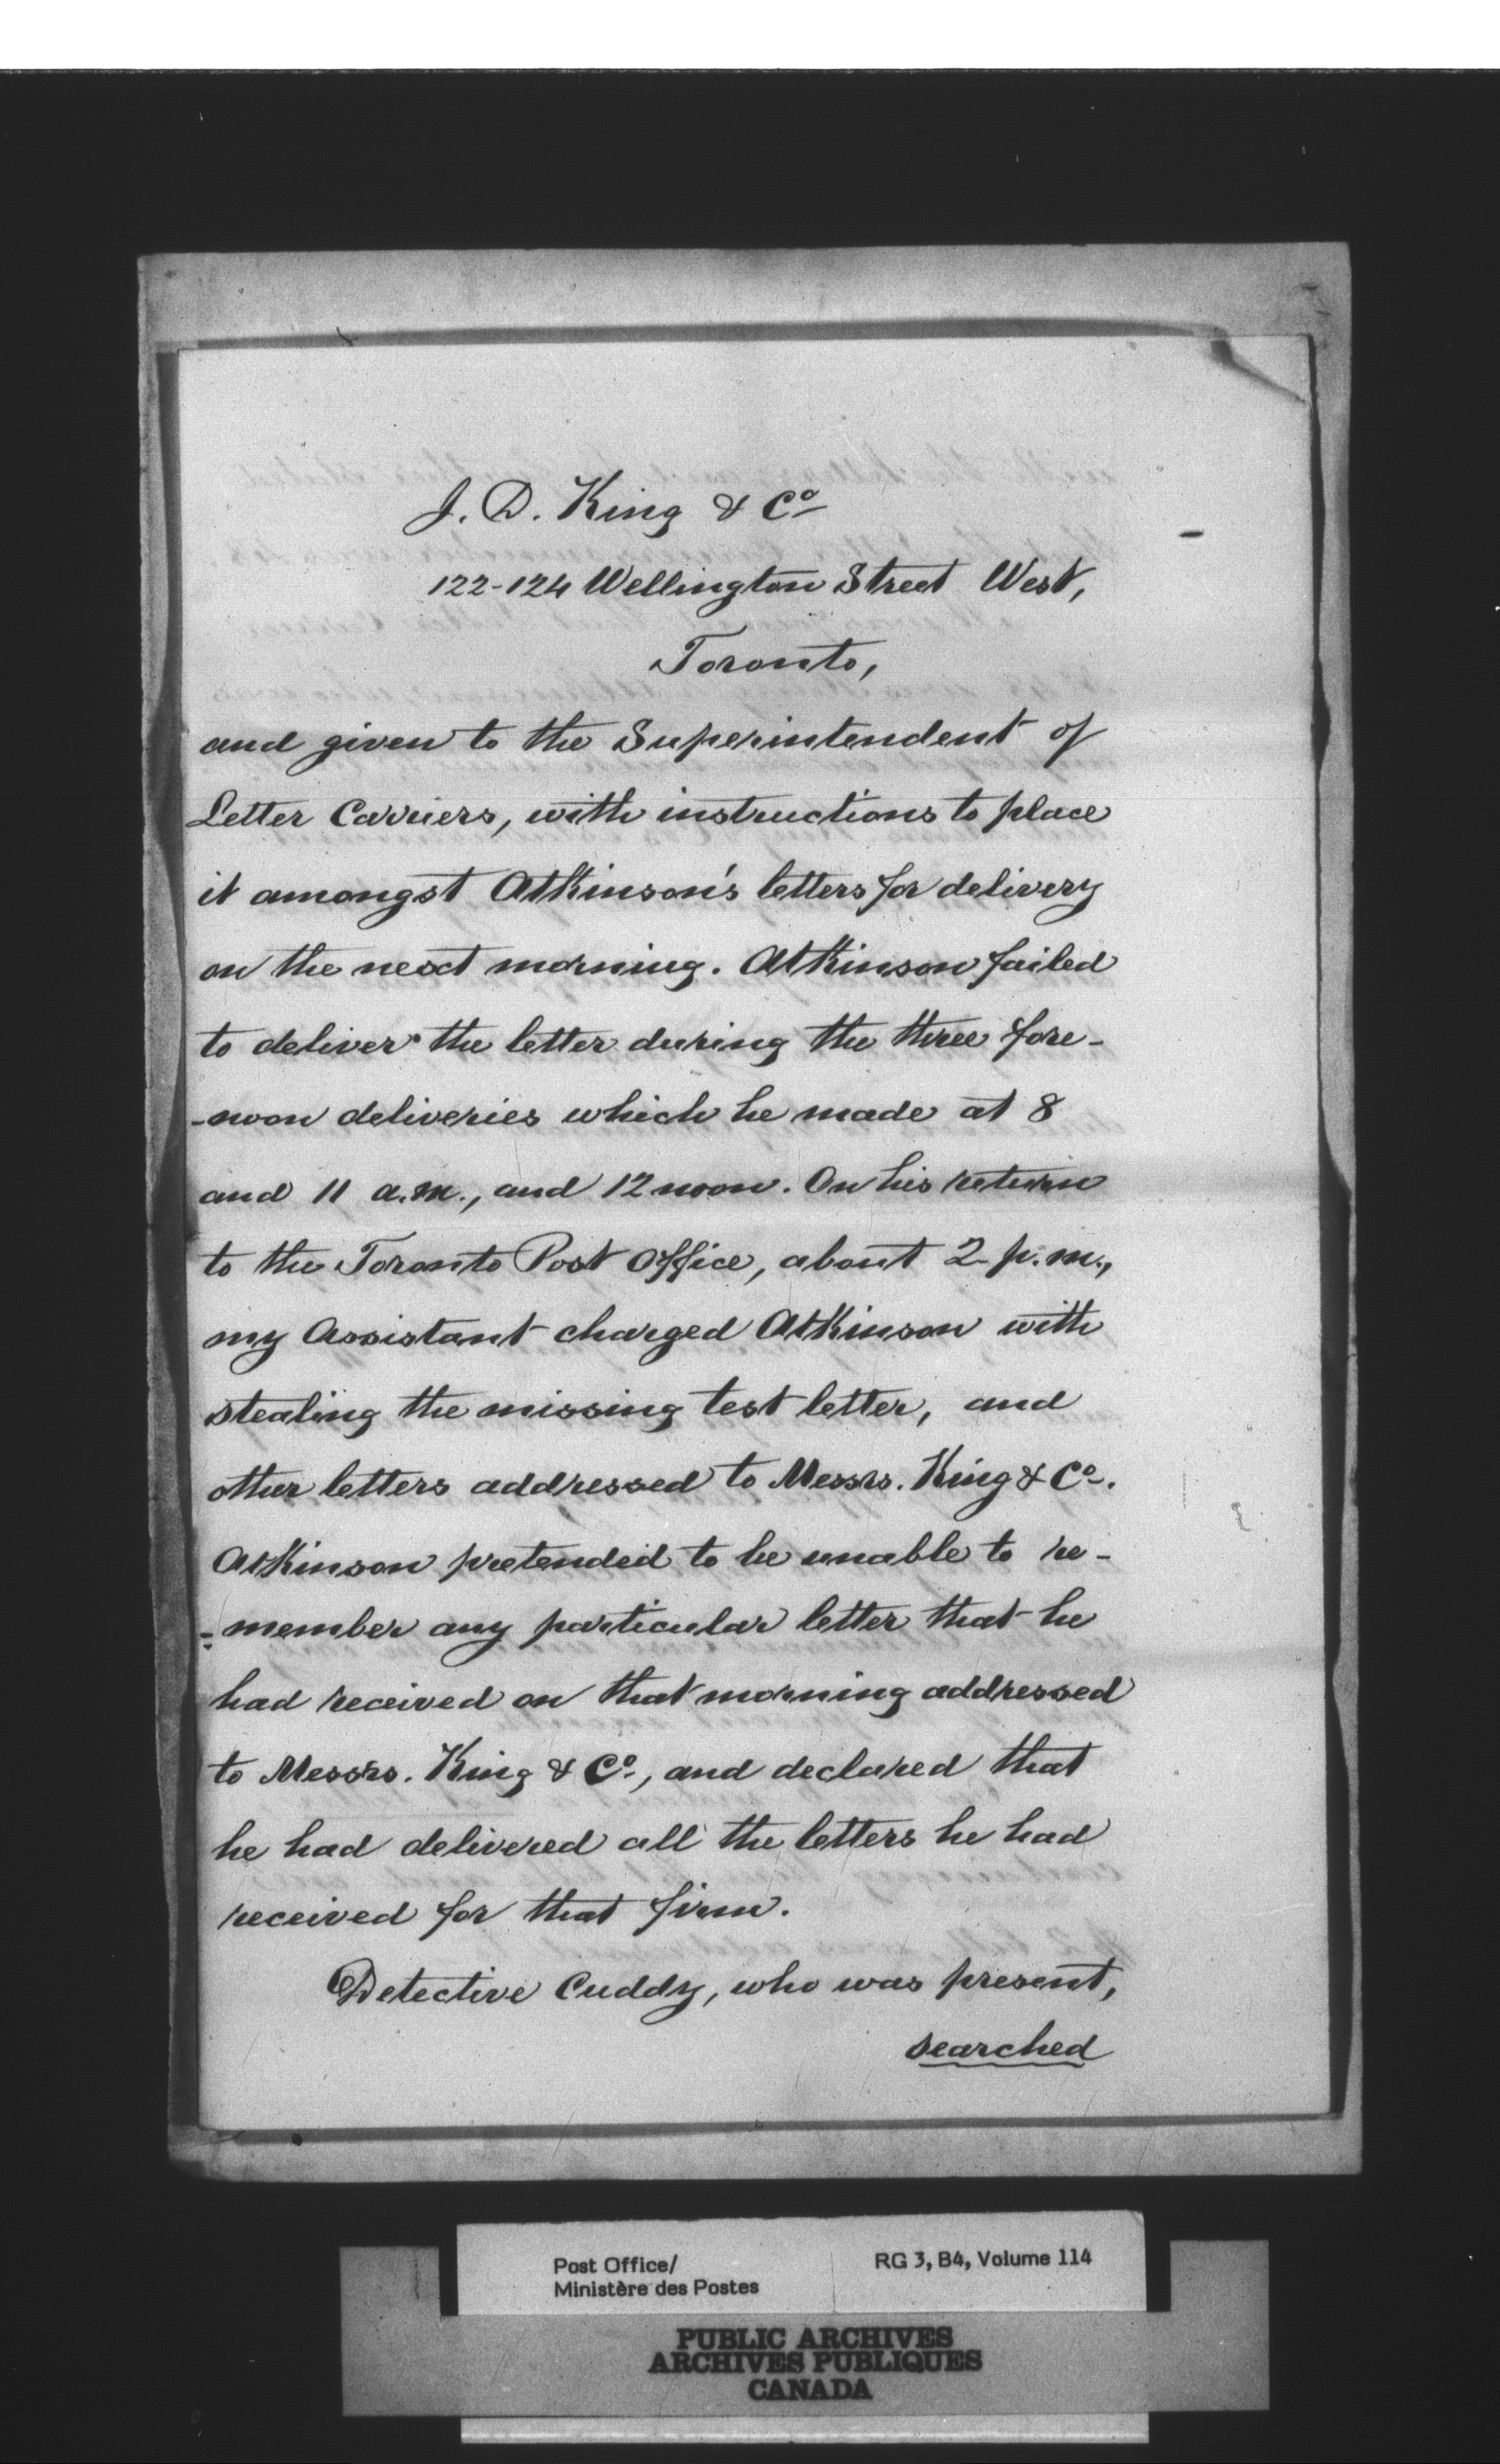 J. D. King & Co
122-124 Wellington Street West,
Toronto,
and given to the Superintendent of
Letter Carriers, with instructions to place
it amongst Atkinson's letters for delivery
on the next morning. Atkinson failed
to deliver the letter during the three fore-
-noon deliveries which he made at 8
and 11 a.m., and 12 noon. On his return
to the Toronto Post Office, about 2 p.m.,
my Assistant charged Atkinson with
stealing the missing test letter, and
other letters addressed to Messrs. King & Co.
Atkinson pretended to be unable to re-
-member any particular letter that he
had received on that morning addressed
to Messrs. King & Co., and declared that
he had delivered all the letters he had
received for that firm.
Detective Cuddy, who was present,
searched
Post Office/
Ministère des Postes
RG 3, B4, Volume 114
PUBLIC ARCHIVES
ARCHIVES PUBLIQUES
CANADA